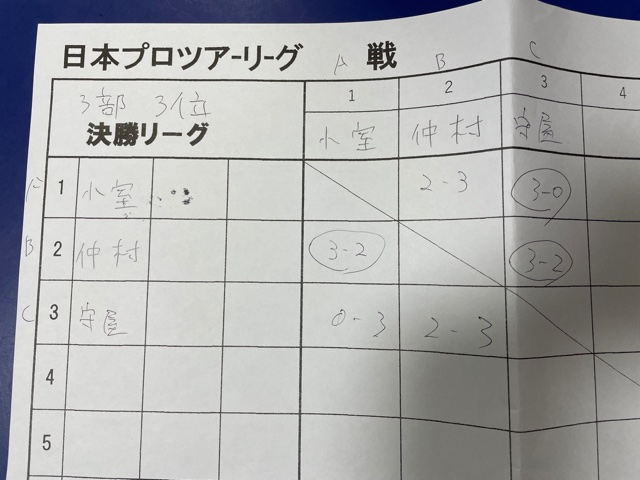 日本プロツアーリーグ 戦
A B C
3部 3位
決勝リーグ
1 2 3 4
小室 仲村 守屋
A 1 小室 2-3 3-0
B 2 仲村 3-2 3-2
C 3 守屋 0-3 2-3
4
5